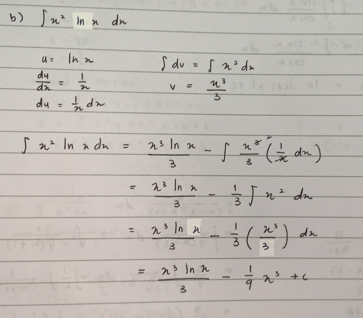 b) ∫ x² ln x dx
u = ln x    ∫ dv = ∫ x² dx
du/dx = 1/x    v = x³/3
du = 1/x dx
∫ x² ln x dx = x³ ln x / 3 − ∫ x³/3 ² (1/x dx)
= x³ ln x / 3 − 1/3 ∫ x² dx
= x³ ln x / 3 − 1/3 (x³/3) dx
= x³ ln x / 3 − 1/9 x³ + c